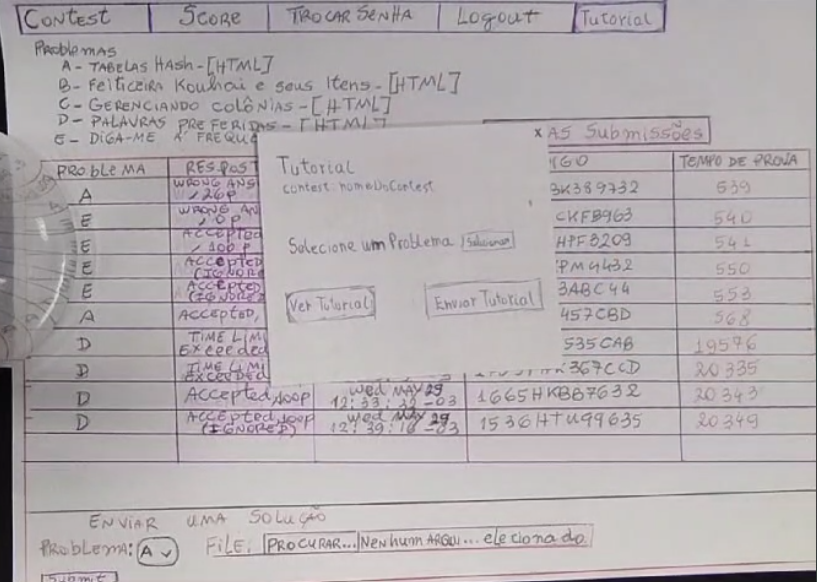 Contest Score TROCAR SENHA Logout Tutorial
Problemas
A - TABELAS HASH - [HTML]
B - Feiticeira Kouhai e seus Itens - [HTML]
C - GERENCIANDO COLÔNIAS - [HTML]
D - PALAVRAS PREFERIDAS - [HTML]
E - DIGA-ME A FREQUÊ
x AS Submissões
Tutorial
contest: nomeDoContest
Selecione um Problema Selecionar
Ver Tutorial Enviar Tutorial
PROBLEMA RESPOST IGO TEMPO DE PROVA
A WRONG ANS 3K389732 539
E WRONG AN , 0 P CKFB963 540
E Accepted , 100 P HPF3209 541
E Accepted (IGNORE PM4432 550
E Accepted (IGNORE 3ABC44 553
A Accepted, 457CBD 568
D TIME LIMI Exceeded 535CAB 19576
D TIME LIMI Exceeded 367CCD 20335
D Accepted, 100p Wed MAY 29 12:33:32 -03 1665HKBB7632 20343
D Accepted, 100p (IGNORED) Wed MAY 29 12:39:16 -03 1536HTU99635 20349
ENVIAR UMA SOLUÇÃO
PROBLEMA: A FILE: PROCURAR... Nenhum ARQU... elecionado.
Submit